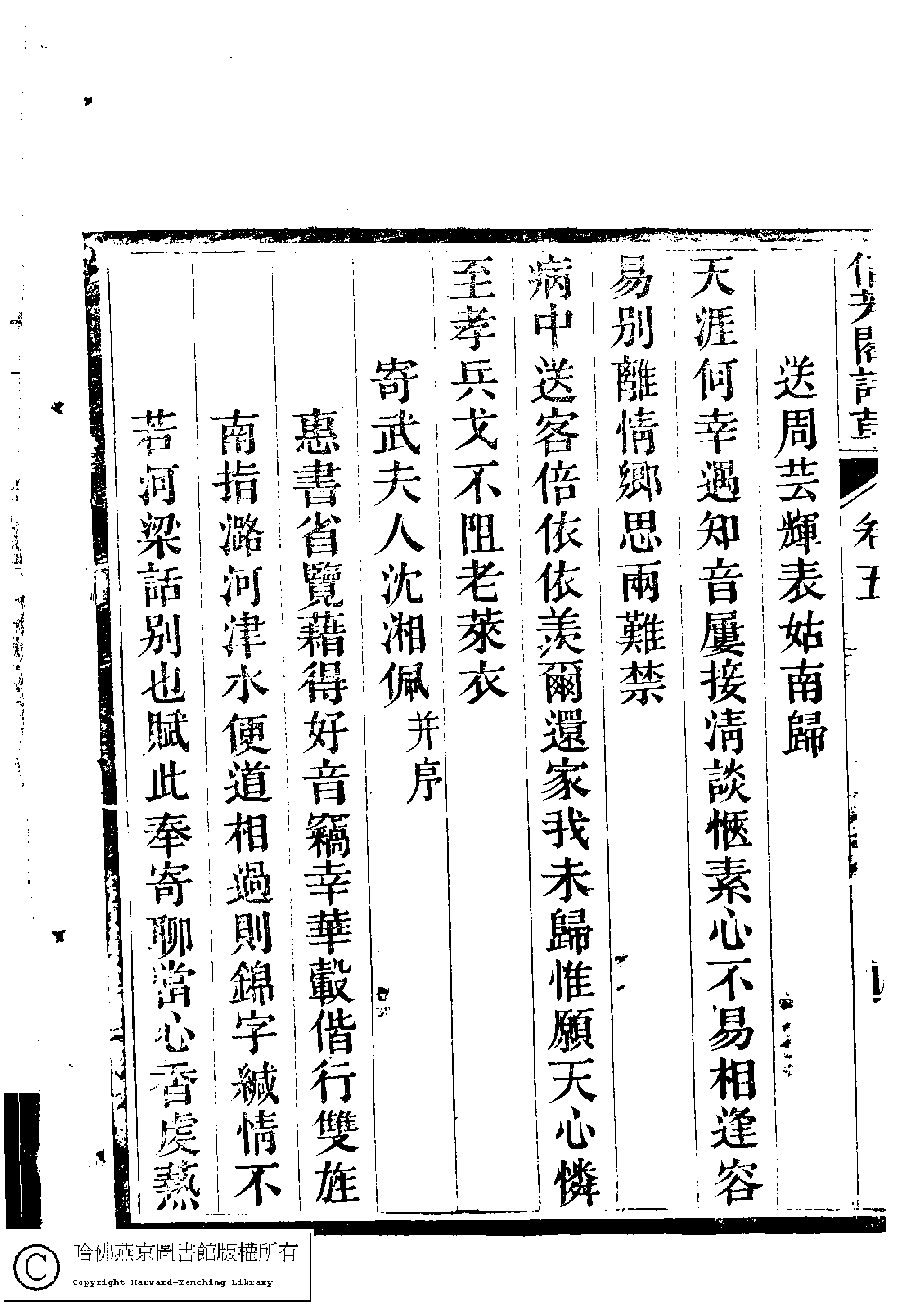 送周芸輝表姑南歸
天涯何幸遇知音屢接淸談愜素心不易相逢容
易別離情鄉思兩難禁
病中送客倍依依羨爾還家我未歸惟願天心憐
至孝兵戈不阻老萊衣
寄武夫人沈湘佩并序
惠書省覽藉得好音竊幸華轂偕行雙旌
南指潞河津水便道相過則錦字緘情不
若河梁話別也賦此奉寄聊當心香虔爇
卷五
哈佛燕京圖書館版權所有
Copyright Harvard-Yenching Library